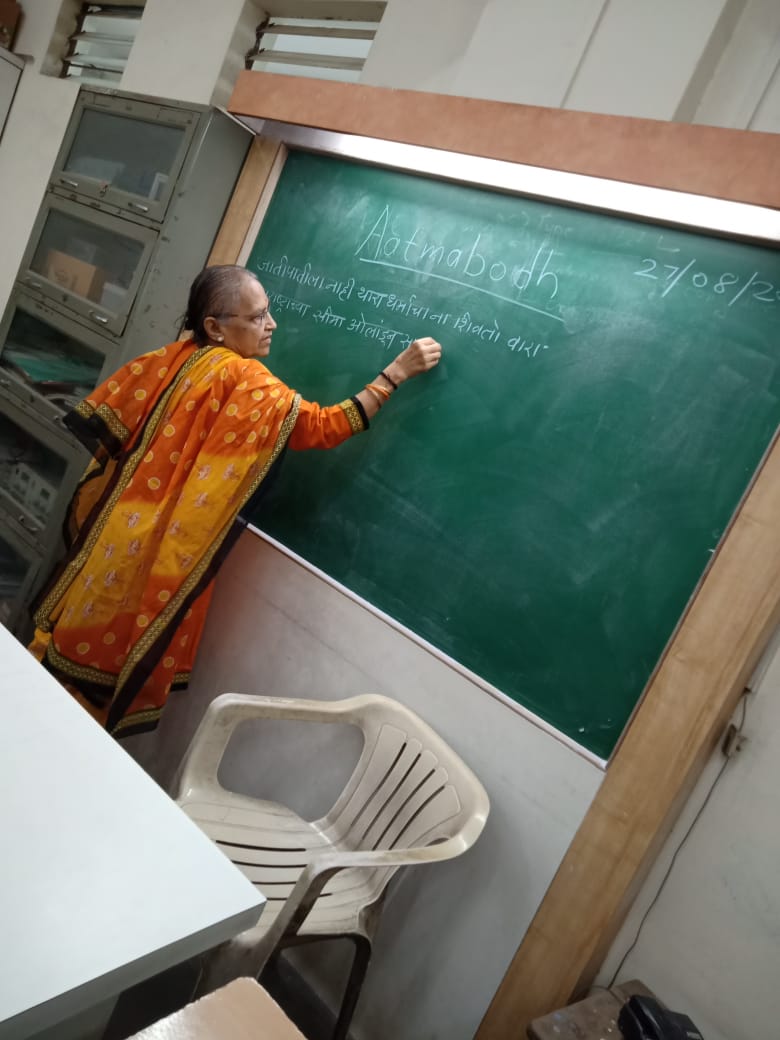 Aatmabodh
27/08/2
जातीपातीला नाही थारा धर्माचा ना शिवतो वारा
सीमा ओलांडून